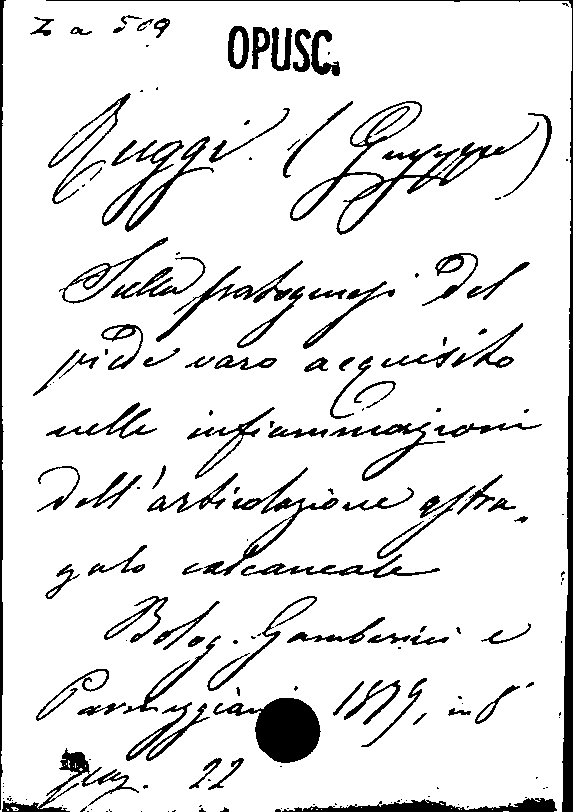 Z a 509
OPUSC.
Ruggi (Giuseppe)
Sulla patogenesi del
piede varo acquisito
nelle infiammazioni
dell'articolazione astra-
galo calcaneale
Bolog. Gamberini e
Parmeggiani 1879, in 8°
pag. 22